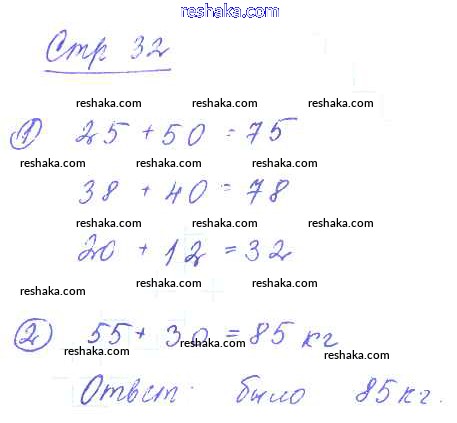 reshaka.com
Стр 32
reshaka.com reshaka.com reshaka.com
① 25 + 50 = 75
reshaka.com reshaka.com reshaka.com
38 + 40 = 78
reshaka.com reshaka.com reshaka.com
20 + 12 = 32
reshaka.com reshaka.com reshaka.com
② 55 + 30 = 85 кг
reshaka.com reshaka.com reshaka.com
Ответ: было 85 кг.
reshaka.com reshaka.com reshaka.com